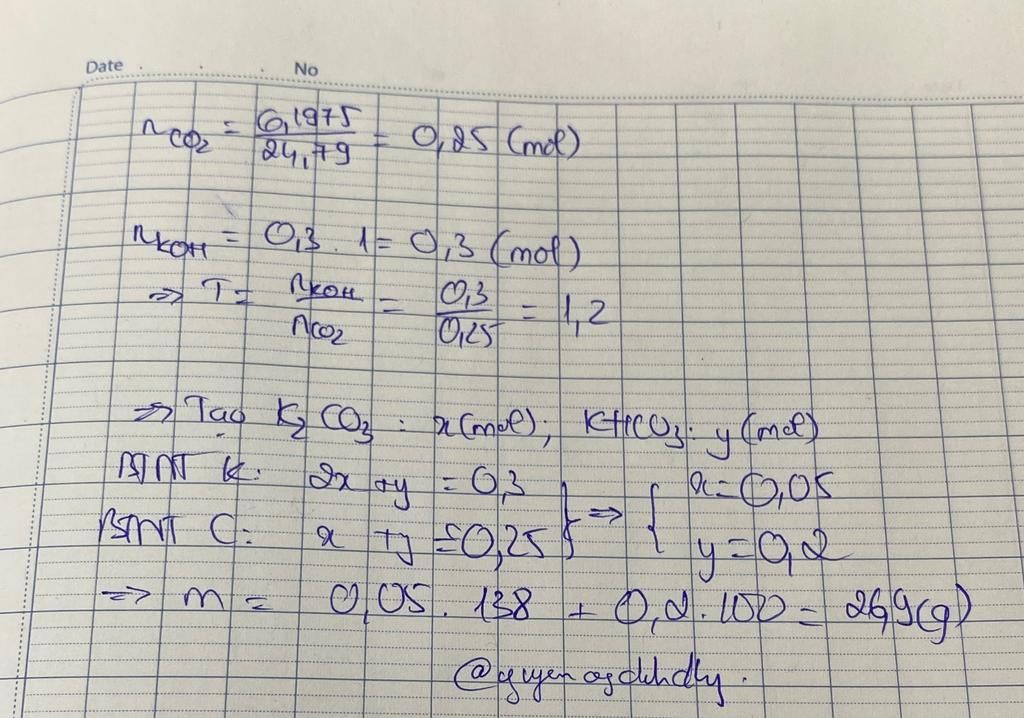 Date No
n_CO2 = 6,1975/24,79 = 0,25 (mol)
n_KOH = 0,3 . 1 = 0,3 (mol)
=> T = n_KOH/n_CO2 = 0,3/0,25 = 1,2
=> Tạo K2CO3 : x (mol); KHCO3: y (mol)
BTNT K: 2x + y = 0,3
BTNT C: x + y = 0,25 } => { x = 0,05 y = 0,2
=> m = 0,05 . 138 + 0,2 . 100 = 26,9 (g)